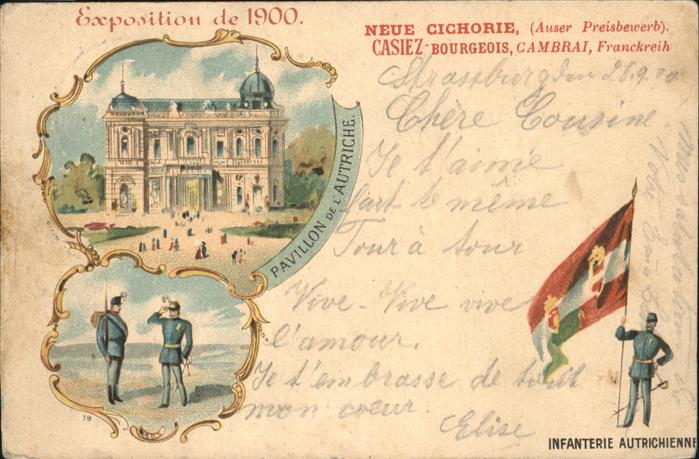 Exposition de 1900.
NEUE CICHORIE, (Auser Preisbewerb).
CASIEZ-BOURGEOIS, CAMBRAI, Franckreih
PAVILLON DE L'AUTRICHE.
Strassburg den 28.9.00
Chère Cousine
Je t'aime
part le même
Tour à tour
Vive-Vive vive
l'amour.
Je t'embrasse de tout
mon coeur.
Elise
78
INFANTERIE AUTRICHIENNE